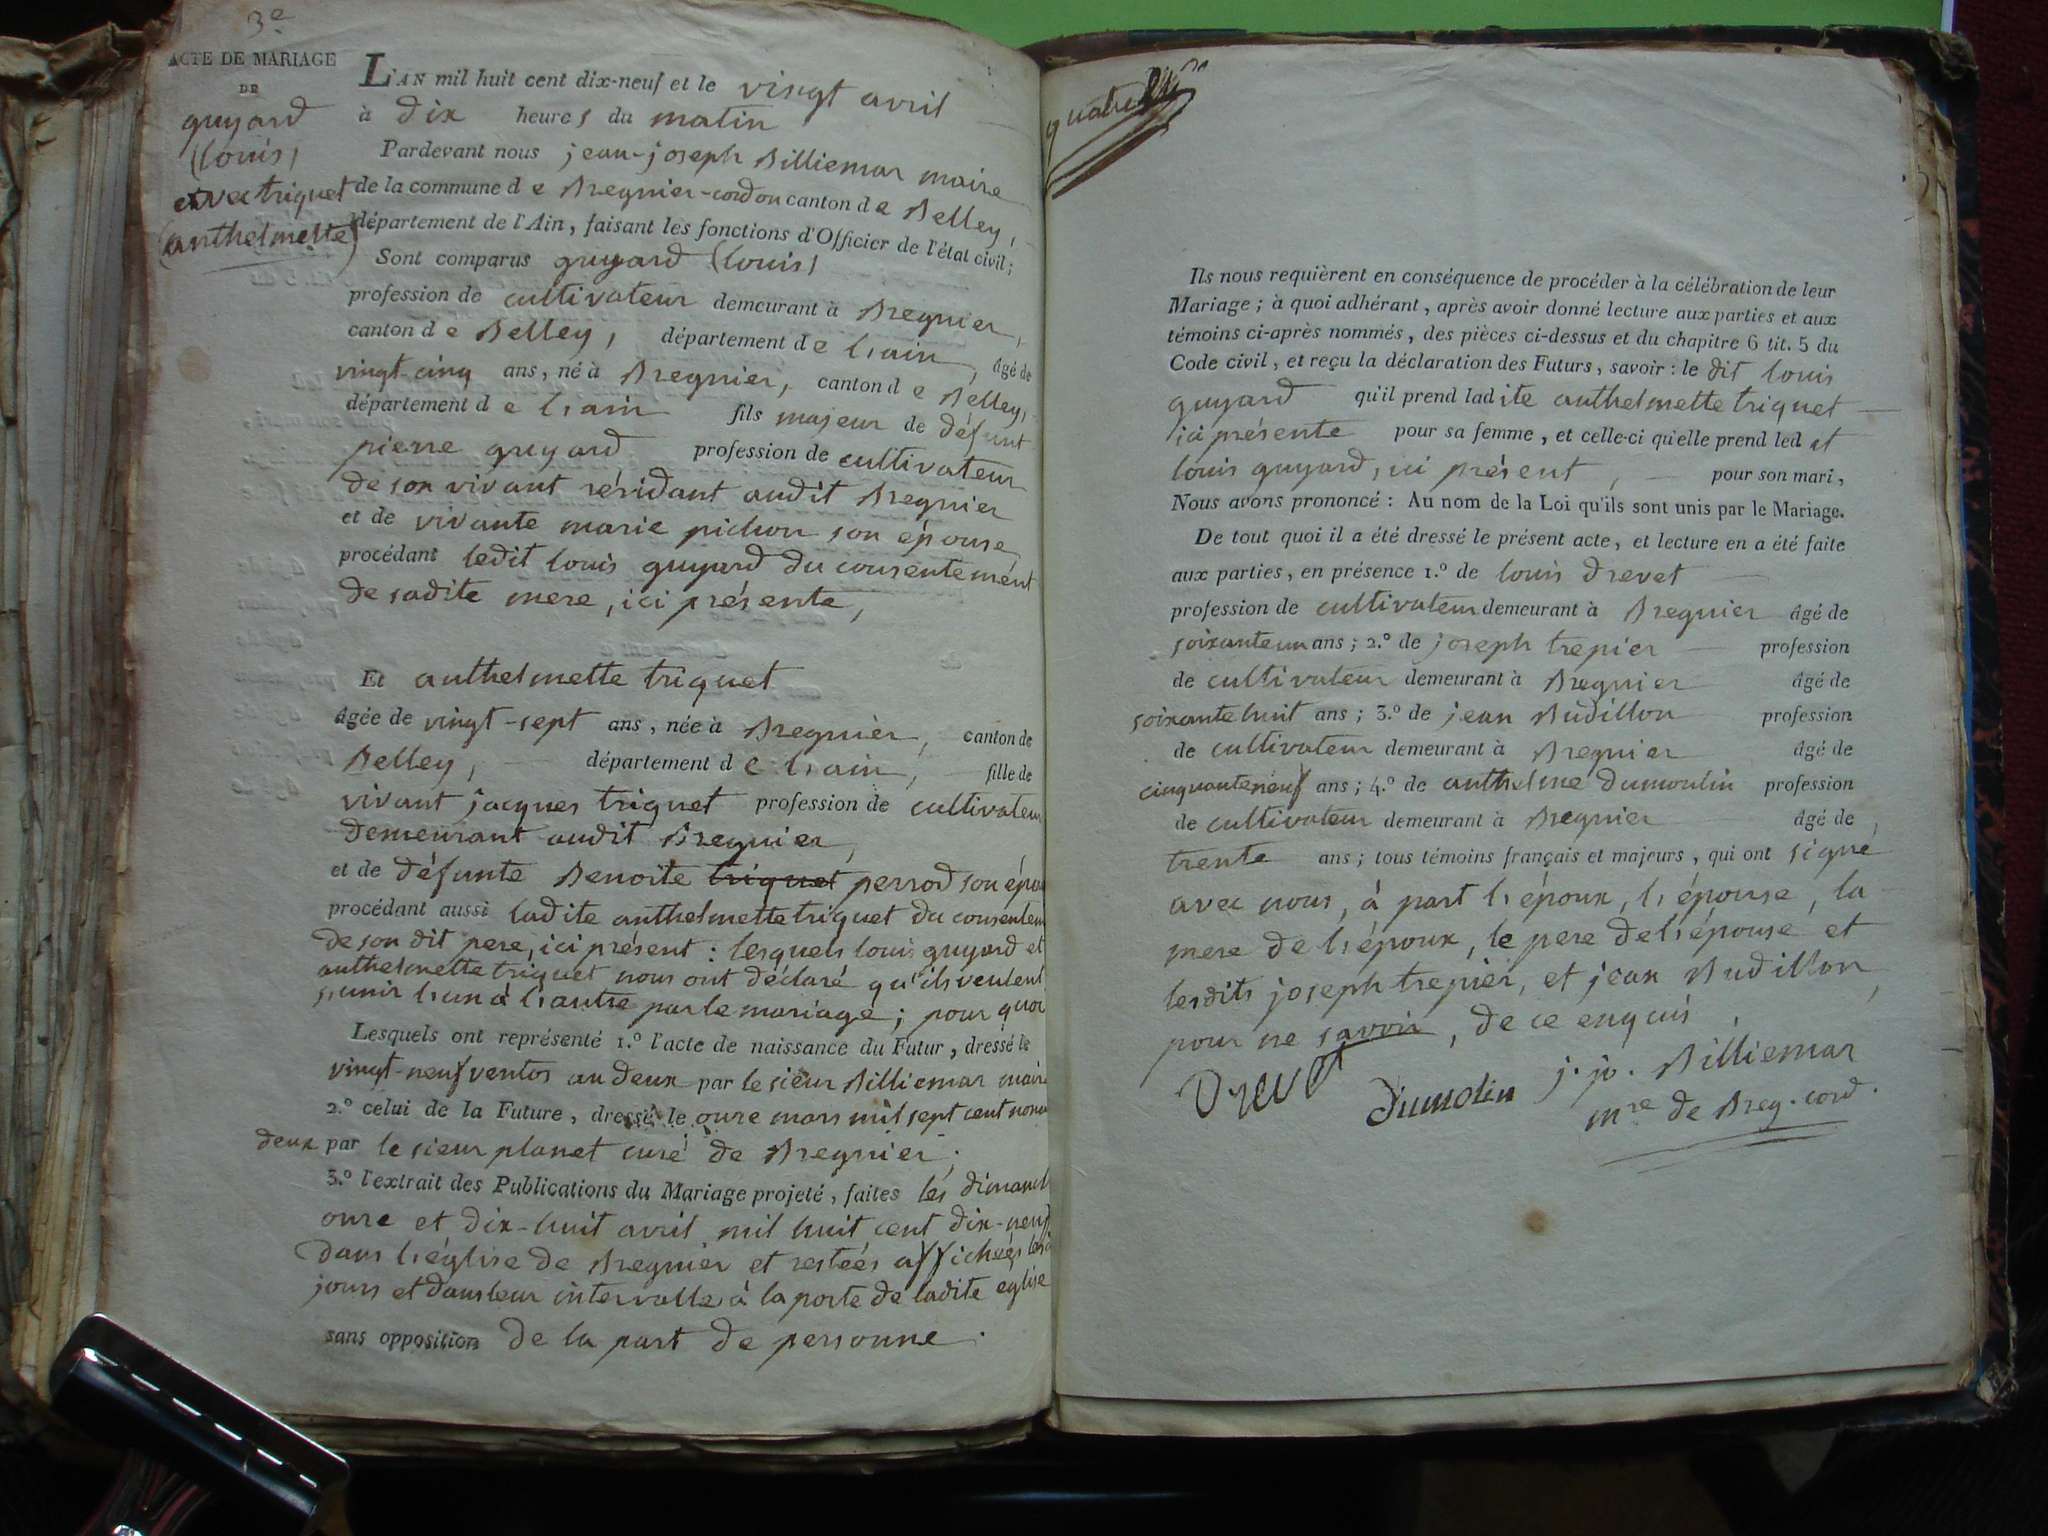 3e
ACTE DE MARIAGE
DE
guyard
(louis)
avec triquet
(anthelmette)
L'AN mil huit cent dix-neuf et le vingt avril
à dix heures du matin
Pardevant nous jean-joseph Billiemar maire
de la commune de Bregnier-cordon canton de Belley,
département de l'Ain, faisant les fonctions d'Officier de l'état civil;
Sont comparus guyard (louis)
profession de cultivateur demeurant à Bregnier,
canton de Belley, département de l'ain, âgé de
vingt-cinq ans, né à Bregnier, canton de Belley,
département de l'ain fils majeur de défunt
pierre guyard profession de cultivateur
de son vivant résidant audit Bregnier
et de vivante marie pichon son épouse
procédant ledit louis guyard du consentement
de sadite mere, ici présente,
Et anthelmette triquet
âgée de vingt-sept ans, née à Bregnier, canton de
Belley, département de l'ain, fille de
vivant jacques triquet profession de cultivateur
demeurant audit Bregnier,
et de défunte Benoite triquet perrod son épou
procédant aussi ladite anthelmette triquet du consentem
de son dit pere, ici présent: lesquels louis guyard et
anthelmette triquet nous ont déclaré qu'ils veulent
s'unir l'un à l'autre par le mariage; pour quoi
Lesquels ont représenté 1.º l'acte de naissance du Futur, dressé le
vingt-neuf ventos an deux par le sieur Billiemar maire
2.º celui de la Future, dressé le onze mars mil sept cent nona
deux par le sieur planet curé de Bregnier;
3.º l'extrait des Publications du Mariage projeté, faites les dimanch
onze et dix-huit avril mil huit cent dix-neuf
dans l'église de Bregnier et restées affichées
jours et dans leur intervalle à la porte de ladite église
sans opposition de la part de personne.
Ils nous requièrent en conséquence de procéder à la célébration de leur
Mariage; à quoi adhérant, après avoir donné lecture aux parties et aux
témoins ci-après nommés, des pièces ci-dessus et du chapitre 6 tit. 5 du
Code civil, et reçu la déclaration des Futurs, savoir: le dit louis
guyard qu'il prend ladite anthelmette triquet
ici présente pour sa femme, et celle-ci qu'elle prend led it
louis guyard, ici présent, pour son mari,
Nous avons prononcé: Au nom de la Loi qu'ils sont unis par le Mariage.
De tout quoi il a été dressé le présent acte, et lecture en a été faite
aux parties, en présence 1.º de louis Drevet
profession de cultivateur demeurant à Bregnier âgé de
soixante un ans; 2.º de joseph trepier profession
de cultivateur demeurant à Bregnier âgé de
soixante huit ans; 3.º de jean Budillon profession
de cultivateur demeurant à Bregnier âgé de
cinquante neuf ans; 4.º de anthelme dumoulin profession
de cultivateur demeurant à Bregnier âgé de
trente ans; tous témoins français et majeurs, qui ont signé
avec nous, à part l'époux, l'épouse, la
mere de l'époux, le pere de l'épouse et
lesdits joseph trepier, et jean Budillon,
pour ne savoir, de ce enquis,
Drevet Dumolin j. jo. Billiemar
mre de Breg. cord.